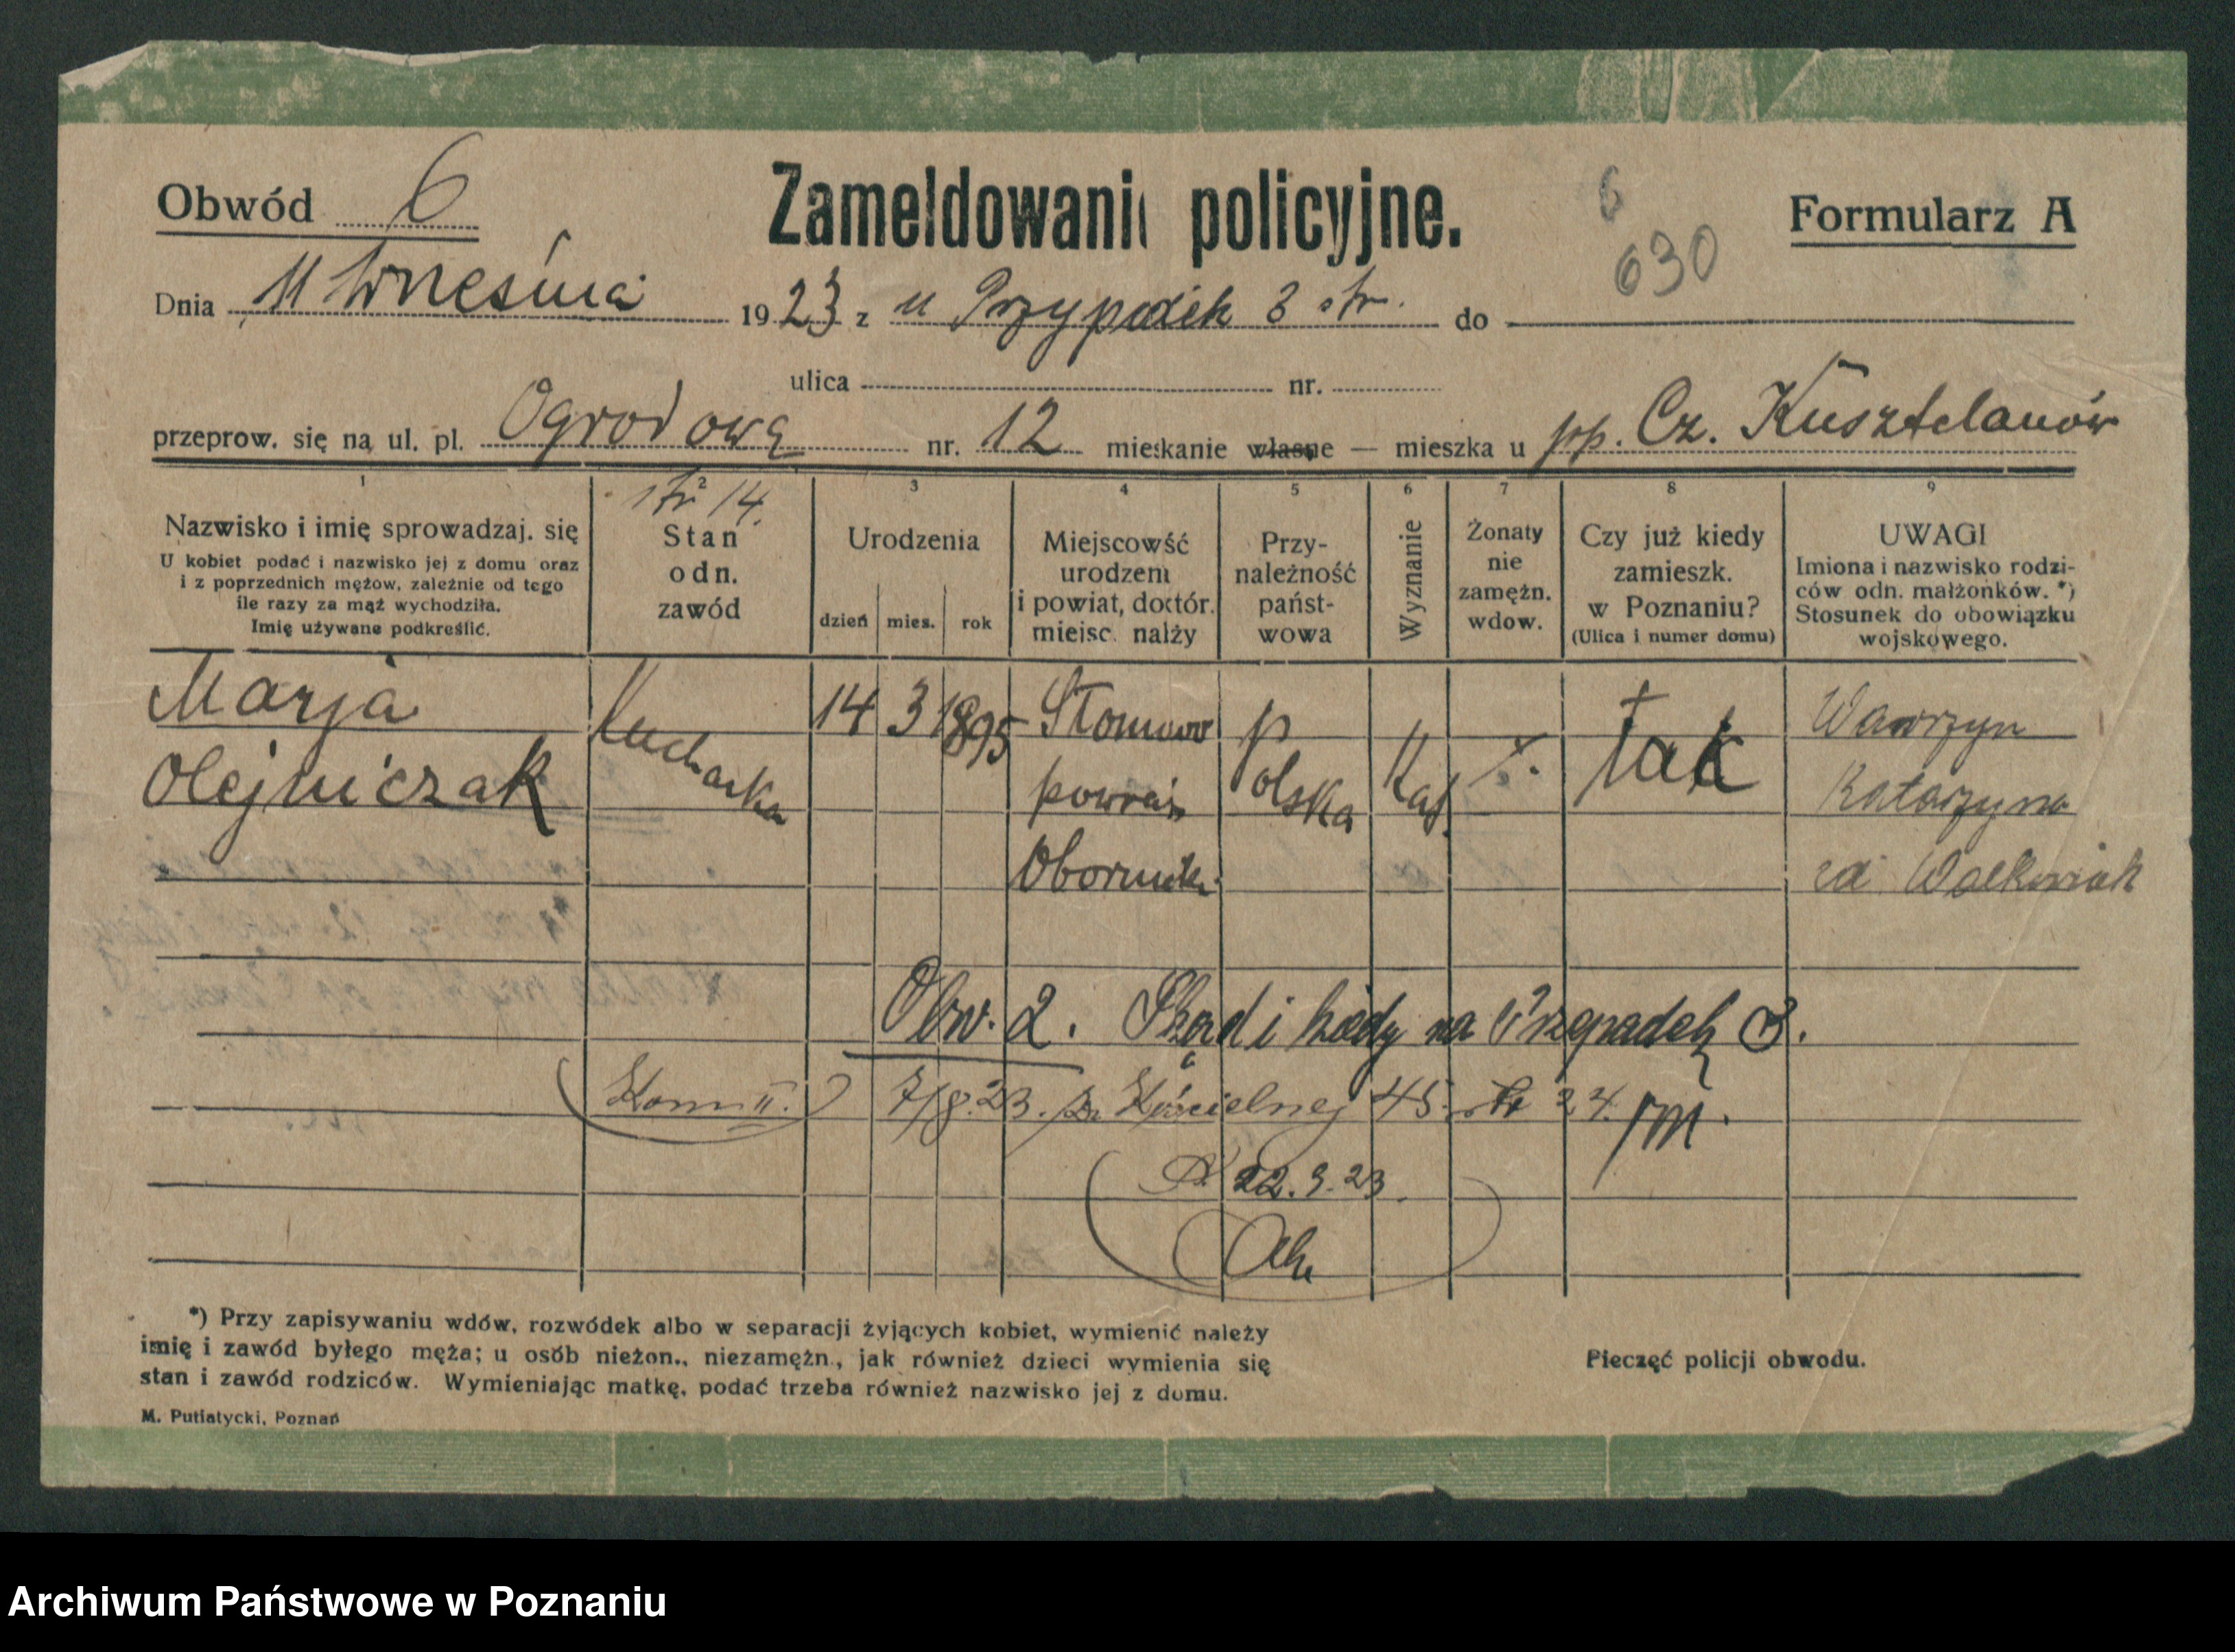 Obwód 6
Zameldowanie policyjne.
6
630
Formularz A
Dnia 11 Września 1923 z u Przypadek 3 str. do
ulica nr.
przeprow. się na ul. pl. Ogrodową nr. 12 mieszkanie własne — mieszka u pp. Cz. Kusztelanów
str 14.
1 2 3 4 5 6 7 8 9
Nazwisko i imię sprowadzaj. się
U kobiet podać i nazwisko jej z domu oraz
i z poprzednich mężow, zależnie od tego
ile razy za mąż wychodziła.
Imię używane podkreślić.
Stan
odn.
zawód
Urodzenia
dzień mies. rok
Miejscowść
urodzeni
i powiat, doctór.
miejsc. nalży
Przy-
należność
państ-
wowa
Wyznanie
Żonaty
nie
zamężn.
wdow.
Czy już kiedy
zamieszk.
w Poznaniu?
(Ulica i numer domu)
UWAGI
Imiona i nazwisko rodzi-
ców odn. małżonków. *)
Stosunek do obowiązku
wojskowego.
Marja
Olejniczak
kucharka
14 3 1895
Słomowo
powiat
Oborniki
Polska
Kat.
tak
Wawrzyn
Katarzyna
zd. Walkowiak
Obw. 2. Skąd i kiedy na Przepadek 3.
Kom II. 7/8.23. z Kościelnej 45. str 24.
22.9.23.
*) Przy zapisywaniu wdów, rozwódek albo w separacji żyjących kobiet, wymienić należy
imię i zawód byłego męża; u osób nieżon., niezamężn., jak również dzieci wymienia się
stan i zawód rodziców. Wymieniając matkę, podać trzeba również nazwisko jej z domu.
Pieczęć policji obwodu.
M. Putiatycki, Poznań
Archiwum Państwowe w Poznaniu